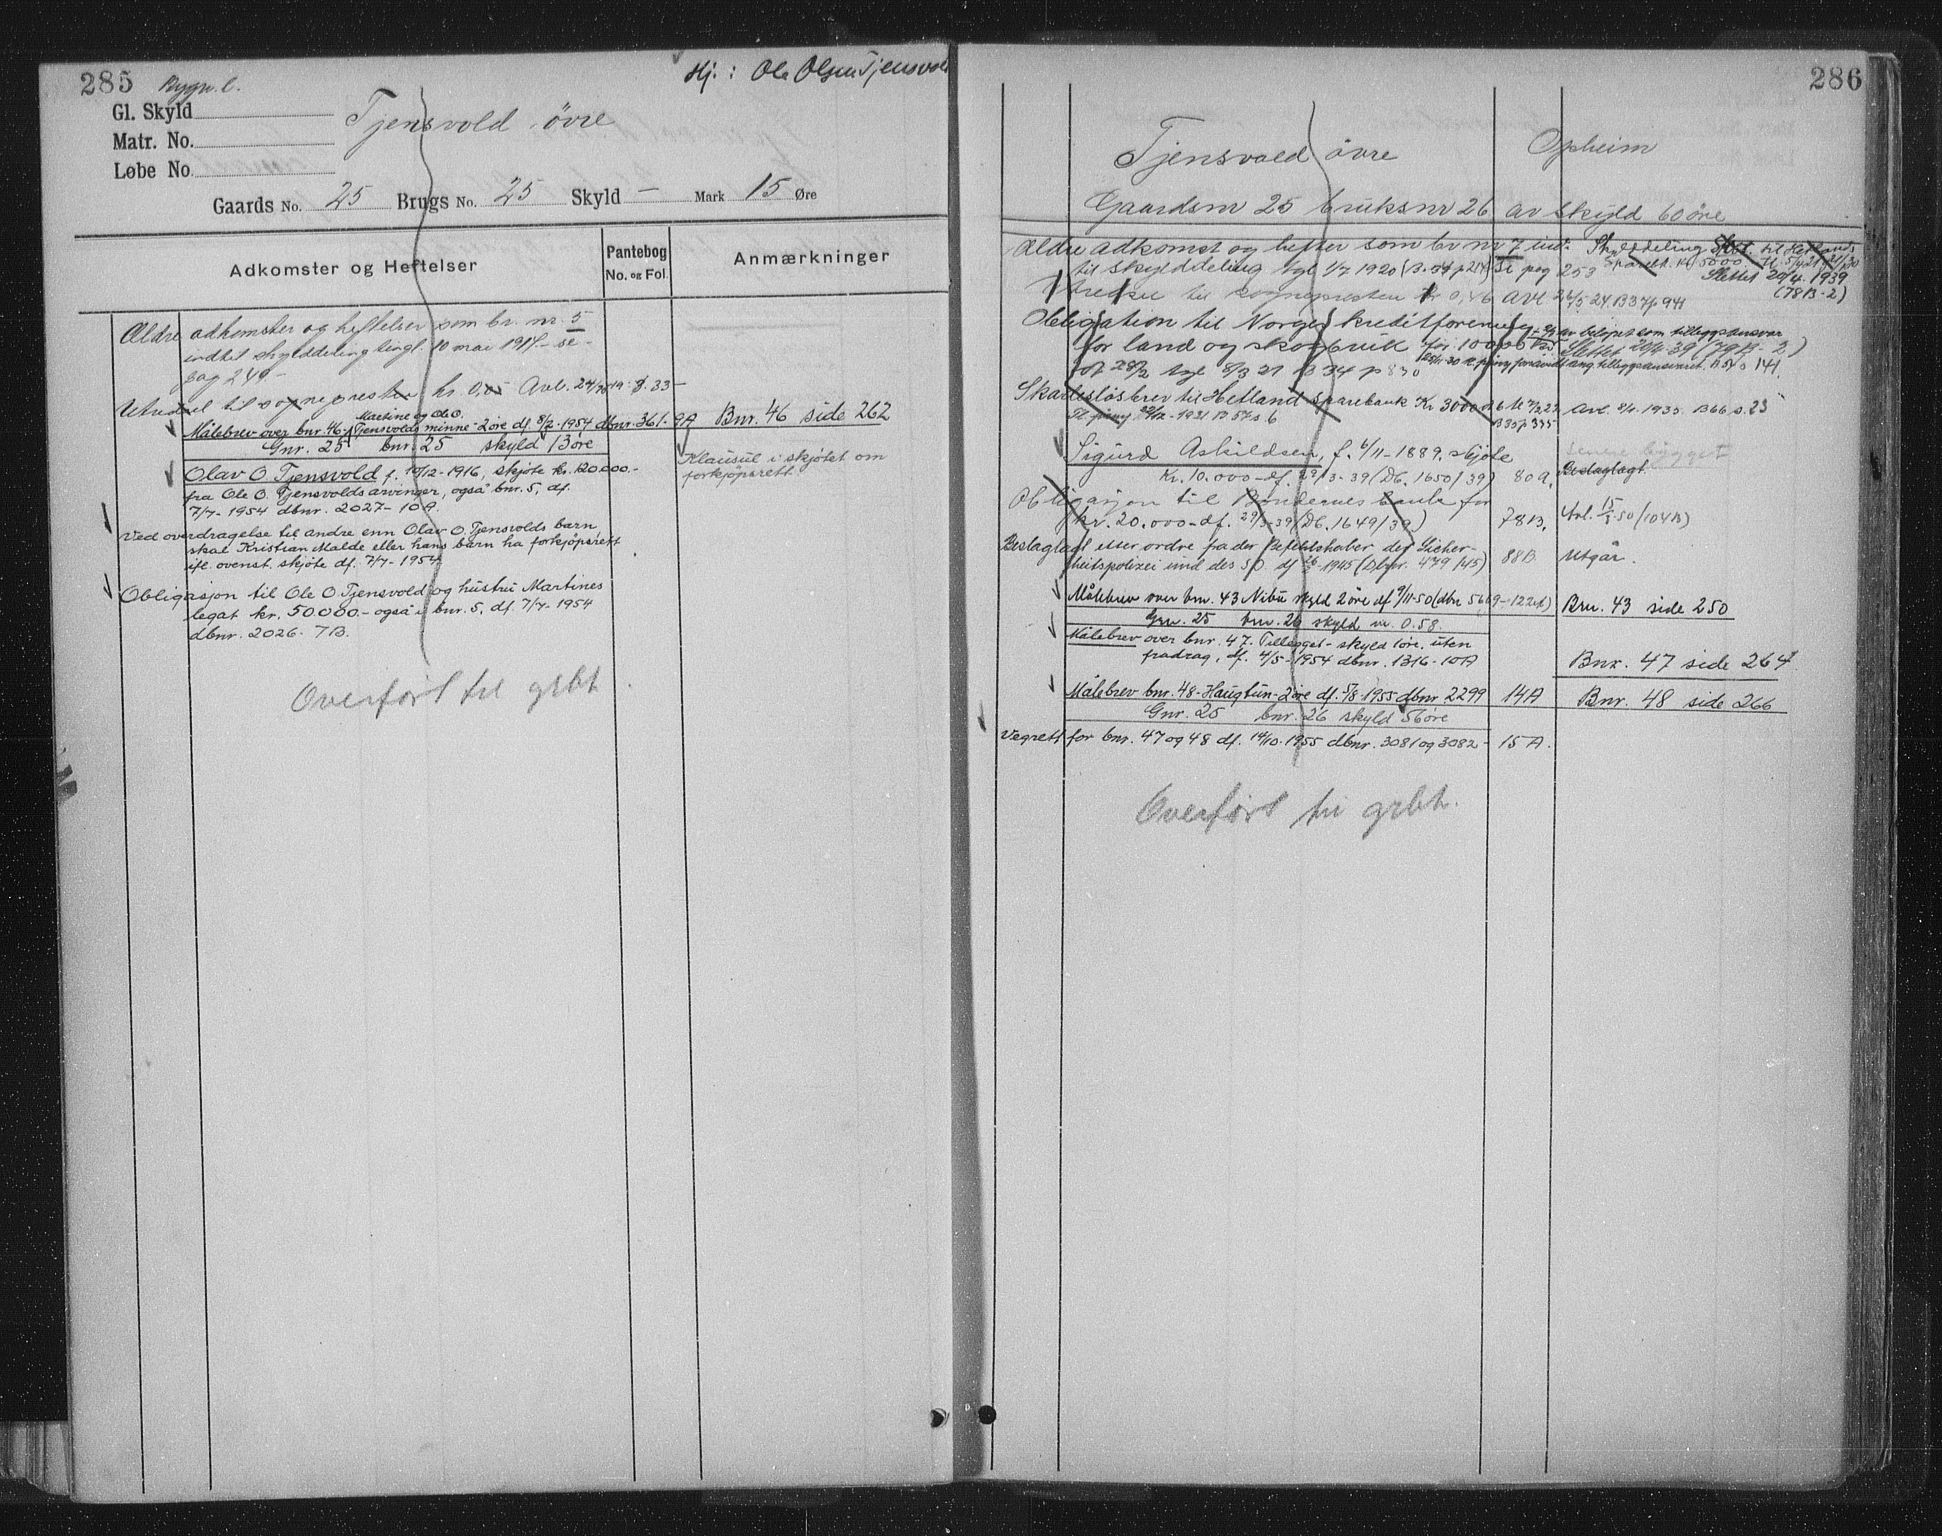 285 Bygn.l. Hj.: Ole Olsen Tjensvold
Gl. Skyld
Matr. No.
Løbe No
Tjensvold øvre
Gaards No. 25 Brugs No. 25 Skyld — Mark 15 Øre
Adkomster og Heftelser
Pantebog
No. og Fol.
Anmærkninger
Ældre adkomster og heftelser som br. nr. 5
indtil skylddeling tingl. 10 mai 1914 - se
pag 249 -
Utredsel til sognepresten kr. 0,05 Avl.
Martine og Ole O.
Målebrev over bnr. 46 - Tjensvolds minne - 2 øre df. 8/2-1954 dbnr. 361- 9A Bnr. 46 side 262
Gnr. 25 bnr. 25 skyld 13 øre
Olav O. Tjensvold f. 10/12-1916, skjøte kr. 120000.-
fra Ole O. Tjensvolds arvinger, også bnr. 5, df.
7/7-1954 dbnr. 2027-10A.
Klausul i skjøtet om
forkjøpsrett.
Ved overdragelse til andre enn Olav O. Tjensvolds barn
skal Kristian Malde eller hans barn ha forkjøpsrett
ifl. ovenst. skjøte df. 7/7-1954.
Obligasjon til Ole O. Tjensvold og hustru Martines
legat kr. 50000.- også i bnr. 5, df. 7/7-1954
dbnr. 2026. 7B.
Overført til grbt
286
Tjensvold øvre Opheim
Gaardsnr 25 bruksnr 26 av skyld 60 øre
Ældre adkomst og hefter som br nr 7 ind-
til skylddeling tgl 1/7 1920 (B. 34 p 214) se pag 253
Slettet 20/4 1939
(78B-2)
Utredsel til sognepresten kr 0,46 Avl 26/5 24 B 37 p 941
Obligation til Norges kreditforening
for land og skogbruk for 10000 kr
tgl 8/3 21 B 34 p 830
Slettet 20/4 39 (79B-2)
Skadesløsbrev til Hetland Sparebank Kr 3000 Avl. 8/4 1935. B66 s. 23
B 35 p 345
Sigurd Askildsen, f. 6/11-1889, skjøte
Kr. 10.000 - df. 29/3-39 (Db. 1650/39) 80A, Beslaglagt.
Obligasjon til Bøndernes bank for
kr. 20.000 - df. 29/3-39 (Db. 1649/39) 78B, Avl. 15/5-50 (104B)
Beslaglagt etter ordre fra der Befehlshaber der Sicher-
heitspolizei und des SD. 1945 (Dbnr. 479/45) 88B Utgår.
Målebrev over bnr. 43 Nibu skyld 2 øre df 9/11-50 (dbnr 5669-122A) Bnr. 43 side 250
Gnr. 25 bnr. 26 skyld m. 0.58.
Målebrev over bnr. 47. Tillegget - skyld 1 øre, uten
fradrag, df. 4/5-1954 dbnr. 1316-10A Bnr. 47 side 264
Målebrev bnr. 48 - Haugtun - 2 øre df. 5/8-1955 dbnr. 2299 14A Bnr. 48 side 266
Gnr. 25 bnr. 26 skyld 56 øre
Vegrett for bnr. 47 og 48 df. 14/10-1955 dbnr. 3081 og 3082 - 15A.
Overført til grbt.